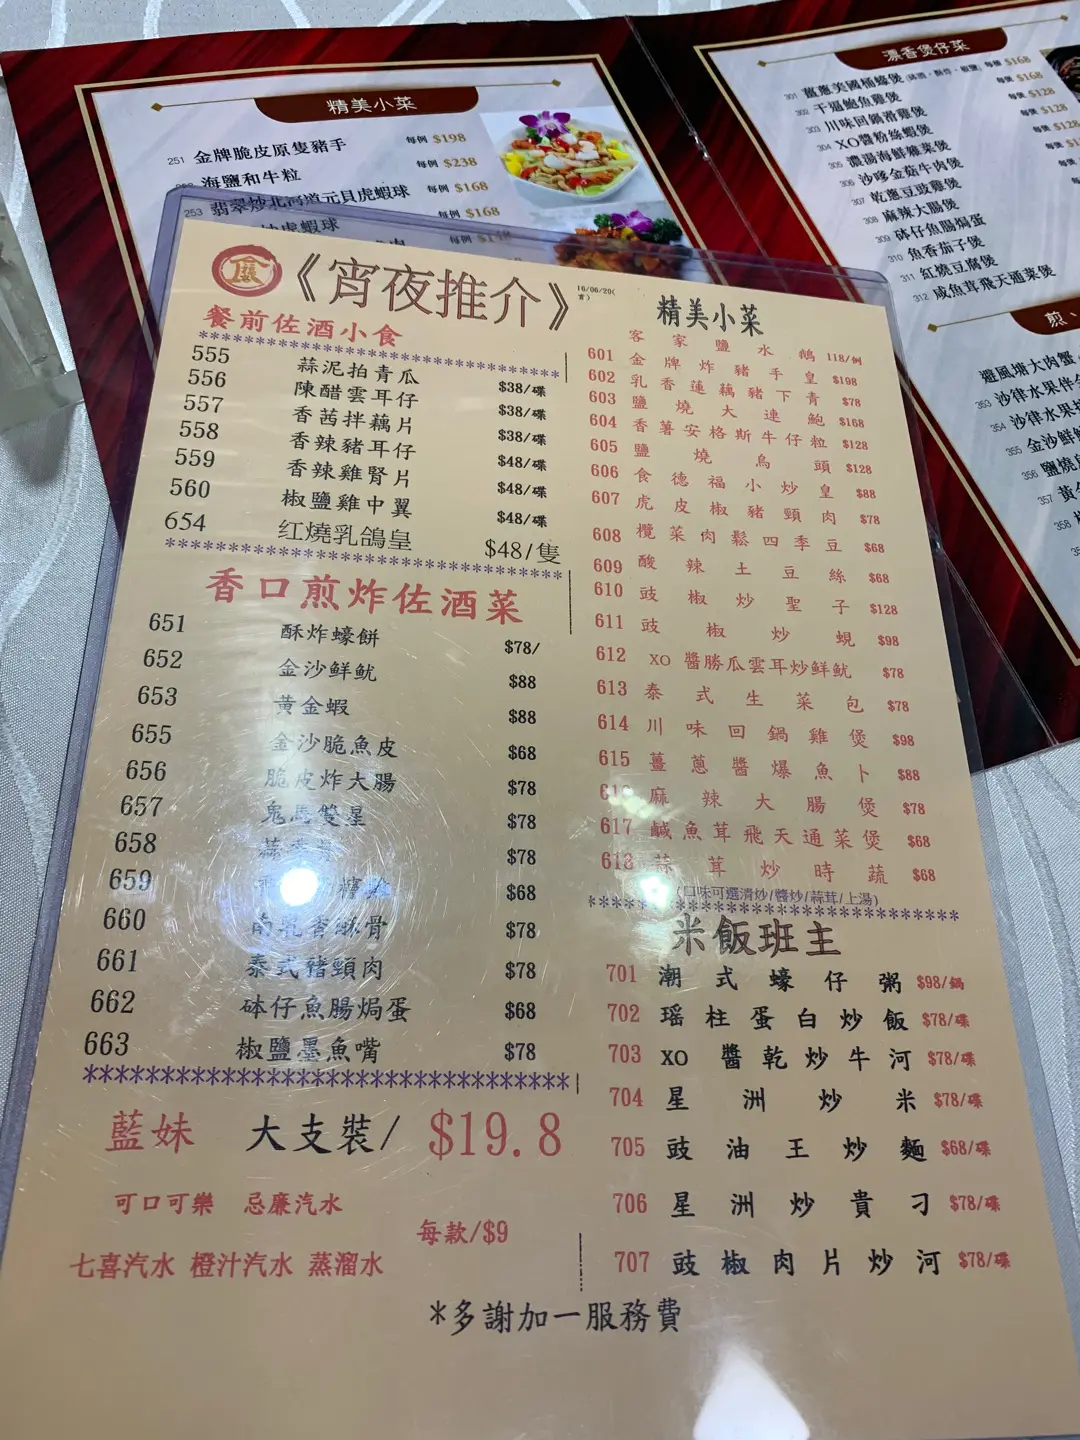 精美小菜
251 金牌脆皮原隻豬手 每例 $198
海鹽和牛粒 每例 $238
253 翡翠炒北河道元貝虎蝦球 每例 $168
虎蝦球 每例 $168
每例
濃香煲仔菜
301 薑蔥美國桶蠔煲 每煲 $168
302 干逼鮑魚雞煲 每煲 $168
303 川味回鍋滑雞煲 每煲 $128
304 XO醬粉絲蝦煲 每煲 $128
305 濃湯海鮮雜菜煲
306 沙嗲金菇牛肉煲
307 乾蔥豆豉雞煲
308 麻辣大腸煲
309 砵仔魚腸焗蛋
310 魚香茄子煲
311 紅燒豆腐煲
312 咸魚茸飛天通菜煲
煎、
避風塘大肉蟹
353 沙律水果伴
354 沙律水果
355 金沙鮮
356 鹽燒
357 黃
358
《宵夜推介》
餐前佐酒小食
*****************************
555 蒜泥拍青瓜 $38/碟
556 陳醋雲耳仔 $38/碟
557 香茜拌藕片 $38/碟
558 香辣豬耳仔 $48/碟
559 香辣雞腎片 $48/碟
560 椒鹽雞中翼 $48/碟
654 红燒乳鴿皇 $48/隻
*********************************
香口煎炸佐酒菜
651 酥炸蠔餅 $78/
652 金沙鮮魷 $88
653 黃金蝦 $88
655 金沙脆魚皮 $68
656 脆皮炸大腸 $78
657 鬼馬雙星 $78
658 $78
659 $68
660 南乳香酥骨 $78
661 泰式豬頸肉 $78
662 砵仔魚腸焗蛋 $68
663 椒鹽墨魚嘴 $78
********************************
藍妹 大支裝/ $19.8
可口可樂 忌廉汽水
每款/$9
七喜汽水 橙汁汽水 蒸溜水
精美小菜
客家鹽水鵝 118/例
601 金牌炸豬手皇 $198
602 乳香蓮藕豬下青 $78
603 鹽燒大連鮑 $168
604 香薯安格斯牛仔粒 $128
605 鹽燒烏頭 $128
606 食德福小炒皇 $88
607 虎皮椒豬頸肉 $78
608 欖菜肉鬆四季豆 $68
609 酸辣土豆絲 $68
610 豉椒炒聖子 $128
611 豉椒炒蜆 $98
612 XO醬勝瓜雲耳炒鮮魷 $78
613 泰式生菜包 $78
614 川味回鍋雞煲 $98
615 薑蔥醬爆魚卜 $88
616 麻辣大腸煲 $78
617 鹹魚茸飛天通菜煲 $68
618 蒜茸炒時蔬 $68
(口味可選清炒/醬炒/蒜茸/上湯)
*********************************
米飯班主
701 潮式蠔仔粥 $98/鍋
702 瑶柱蛋白炒飯 $78/碟
703 XO醬乾炒牛河 $78/碟
704 星洲炒米 $78/碟
705 豉油王炒麵 $68/碟
706 星洲炒貴刁 $78/碟
707 豉椒肉片炒河 $78/碟
*多謝加一服務費